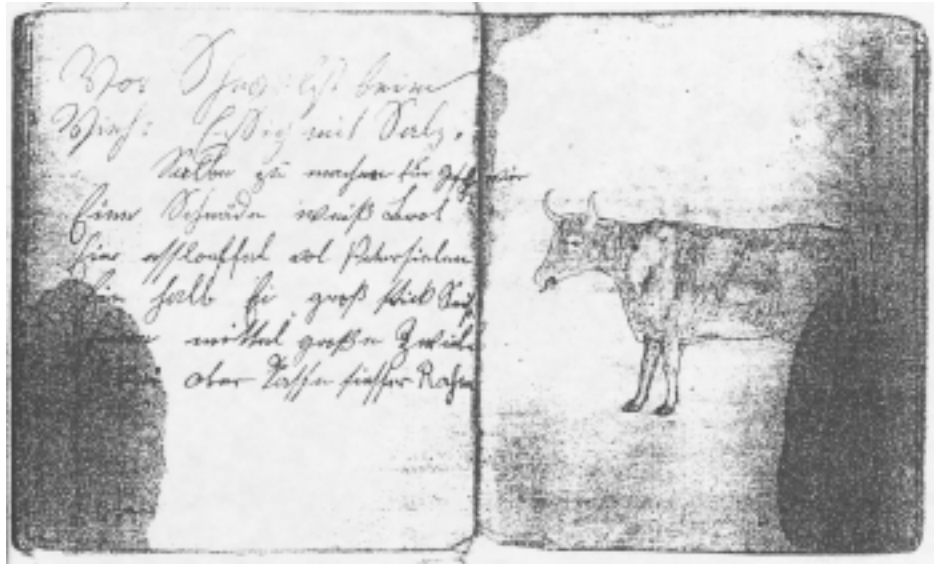 Vor Schwulst beim
Vieh: Essig mit Salz.
Salbe zu machen für Geschwür
Eine Schnäde weiß brot
Ein essloeffel vol Petersielen
Ein halb Ei groß stück Seif
mittel große Zwiebel
ober Tasse siesser Rahm